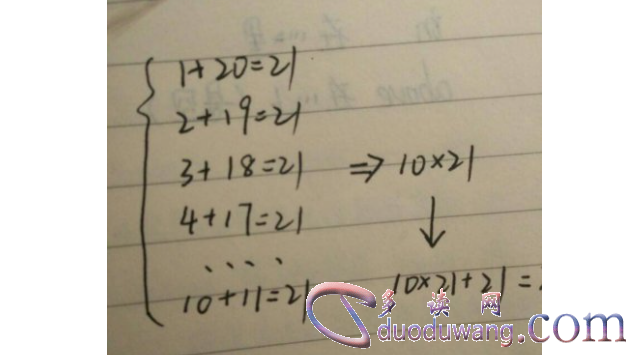 1+20=21
2+19=21
3+18=21 ⇒ 10×21
4+17=21 ↓
····
10+11=21 10×21+21=
多读网
duoduwang.com